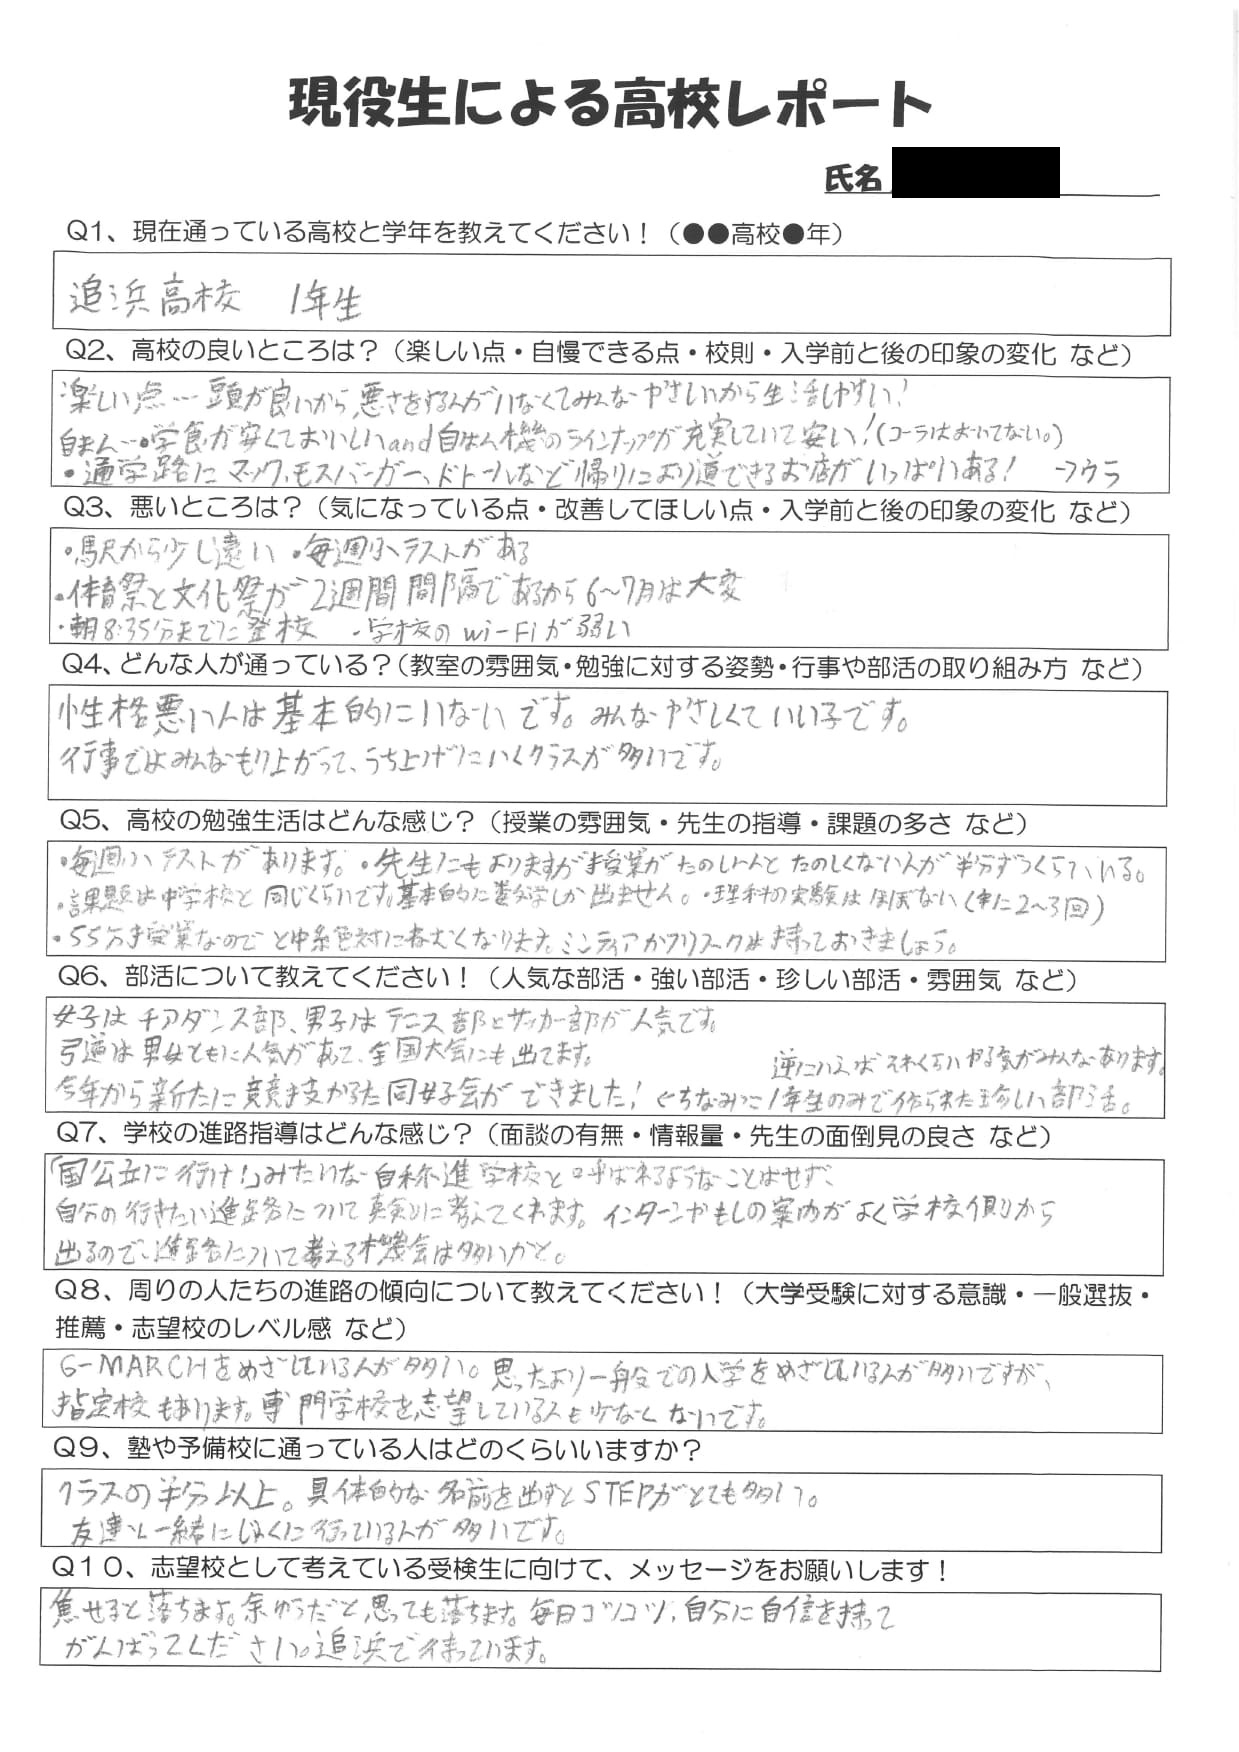 現役生による高校レポート
氏名
Q1、現在通っている高校と学年を教えてください！（●●高校●年）
追浜高校 1年生
Q2、高校の良いところは？（楽しい点・自慢できる点・校則・入学前と後の印象の変化 など）
楽しい点… 頭が良いから悪さをする人がいなくてみんなやさしいから生活しやすい！
自まん…・学食が安くておいしい and 自はん機のラインナップが充実していて安い！(コーラはおいてない。)
・通学路にマック、モスバーガー、ドトールなど帰りにより道できるお店がいっぱいある！
Q3、悪いところは？（気になっている点・改善してほしい点・入学前と後の印象の変化 など）
・駅から少し遠い ・毎週小テストがある
・体育祭と文化祭が2週間間隔であるから6〜7月は大変
・朝8:35分までに登校 ・学校のwi-Fiが弱い
Q4、どんな人が通っている？（教室の雰囲気・勉強に対する姿勢・行事や部活の取り組み方 など）
性格悪い人は基本的にいないです。みんなやさしくていい子です。
行事ではみんなもり上がって、うち上げにいくクラスが多いです。
Q5、高校の勉強生活はどんな感じ？（授業の雰囲気・先生の指導・課題の多さ など）
・毎週小テストがあります。・先生にもよりますが授業がたのしい人とたのしくない人が半分ずつくらいいる。
・課題は中学校と同じくらいです。基本的に数学しか出ません。・理科の実験はほぼない(年に2〜3回)
・55分授業なので と中絶対にねむくなります。ミンティアかフリスクは持っておきましょう。
Q6、部活について教えてください！（人気な部活・強い部活・珍しい部活・雰囲気 など）
女子はチアダンス部、男子はテニス部とサッカー部が人気です。
弓道は男女ともに人気があって、全国大会にも出てます。
逆にいえばそれくらいやる気がみんなあります。
今年から新たに競技かるた同好会ができました！ ←ちなみに1年生のみで作られた珍しい部活。
Q7、学校の進路指導はどんな感じ？（面談の有無・情報量・先生の面倒見の良さ など）
「国公立に行け！」みたいな自称進学校と呼ばれるようなことはせず、
自分の行きたい進路について真剣に考えてくれます。インターンやもしの案内がよく学校側から
出るので、進路について考える機会は多いかと。
Q8、周りの人たちの進路の傾向について教えてください！（大学受験に対する意識・一般選抜・
推薦・志望校のレベル感 など）
G-MARCHをめざしている人が多い。思ったより一般での入学をめざしている人が多いですが、
指定校もあります。専門学校を志望している人も少なくないです。
Q9、塾や予備校に通っている人はどのくらいいますか？
クラスの半分以上。具体的な名前を出すとSTEPがとても多い。
友達と一緒にじゅくに行っている人が多いです。
Q10、志望校として考えている受検生に向けて、メッセージをお願いします！
焦せると落ちます。余ゆうだと思っても落ちます。毎日コツコツ、自分に自信を持って
がんばってください。追浜で待っています。